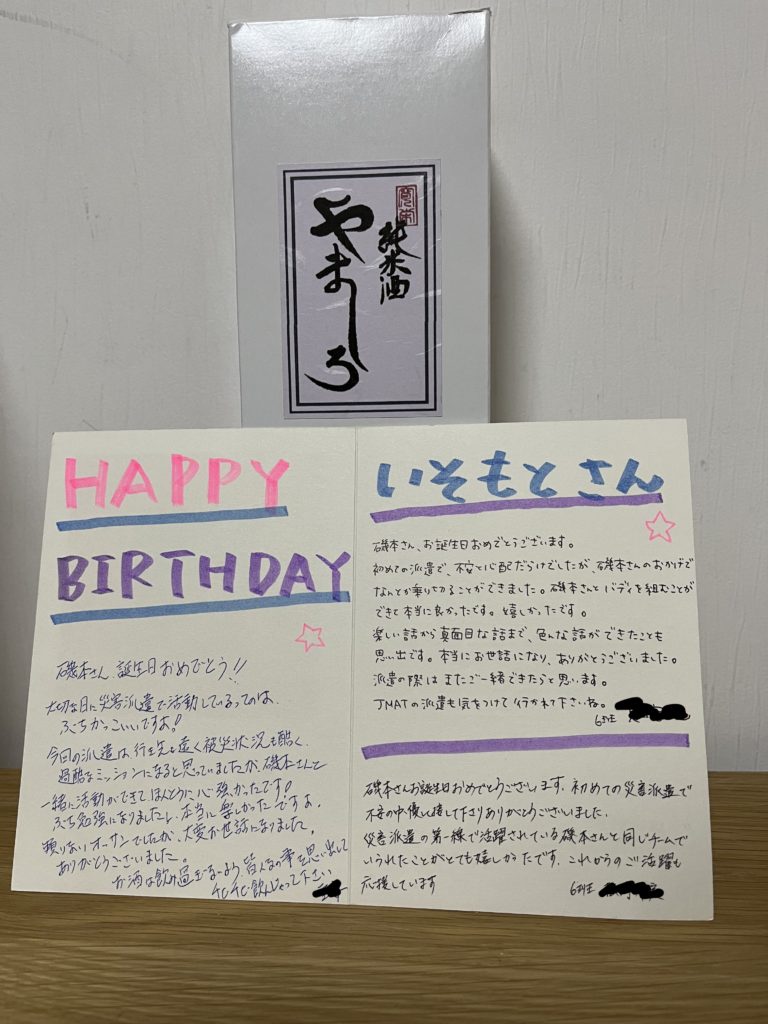 純米酒
やましろ
HAPPY
BIRTHDAY
磯本さん、誕生日おめでとう!!
大切な日に災害派遣で活動しているってのは、
ぶちかっこいいですよ!
今回の派遣は、行き先も遠く被災状況も酷く、
過酷なミッションになると思っていましたが、磯本さんと
一緒に活動ができて、ほんとうに心強かったです!
ぶち勉強になりましたし、本当に楽しかったですよ。
頼りないオッサンでしたが、大変お世話になりました。
ありがとうございました。
お酒は飲み過ぎないよう、皆んなの事を思い出して
チビチビ飲んじゃって下さい
いそもとさん
磯本さん、お誕生日おめでとうございます。
初めての派遣で、不安と心配だらけでしたが、磯本さんのおかげで
なんとか乗り切ることができました。磯本さんとバディを組むことが
できて本当に良かったです。嬉しかったです。
楽しい話から真面目な話まで、色んな話ができたことも
思い出です。本当にお世話になり、ありがとうございました。
派遣の際はまたご一緒できたらと思います。
JMATの派遣も気をつけて行かれて下さいね。
6班
磯本さんお誕生日おめでとうございます。初めての災害派遣で
不安の中優しく接して下さりありがとうございました。
災害派遣の第一線で活躍されている磯本さんと同じチームで
いられたことがとても嬉しかったです。これからのご活躍も
応援しています
6班